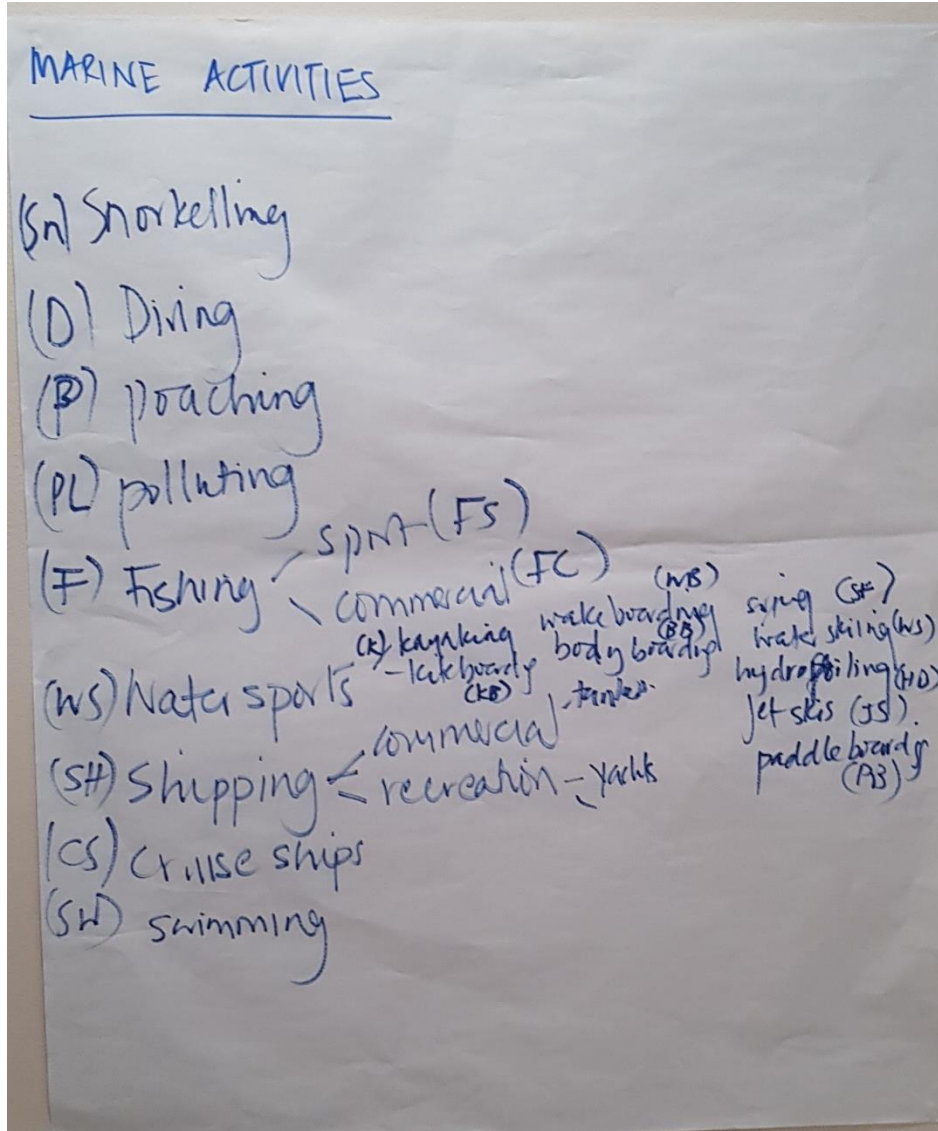 MARINE ACTIVITIES
(Sn) Snorkelling
(D) Diving
(P) poaching
(PL) polluting
(F) Fishing
sport (FS)
commercial (FC)
(WS) Water sports
(K) kayaking
- kiteboardg
(KB)
wakeboarding (WB)
body boardg (BB)
(SF)
water skiing (WS)
hydrofoiling (HD)
Jet skis (JS).
paddle boardg
(PB)
(SH) Shipping
commercial
recreation - yachts
(CS) Cruise ships
(SW) swimming